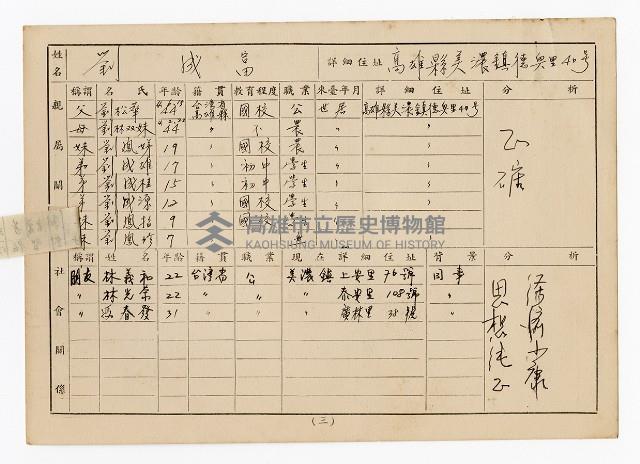 姓名 劉 成 富 詳細住址 高雄縣美濃鎮德興里40号
親屬關 稱謂 姓氏 年齡 籍貫 教育程度 職業 來臺年月 詳細住址 分析
父 劉松華 44 台灣省高雄縣 國校 公 世居 高雄縣美濃鎮德興里40号
母 劉林双妹 44 〃 不 農 〃 〃
妹 劉鳳 19 〃 國校 農 〃 〃
弟 劉成雄 17 〃 初中 學生 〃 〃
弟 劉成桂 15 〃 初中 學生 〃 〃
弟 劉成 12 〃 國校 學生 〃 〃
妹 劉鳳招 9 〃 國校
妹 劉鳳 7 〃
正確
高雄市立歷史博物館
KAOHSIUNG MUSEUM OF HISTORY
社會關係 稱謂 姓名 年齡 籍貫 職業 現在詳細住址 背景 分析
朋友 林義和 22 台灣省 公 美濃鎮 上安里 76號 同事
〃 林光榮 22 〃 〃 〃 泰安里 108號 〃
〃 春發 31 〃 〃 〃 廣林里 38號 〃
經濟小康
思想純正
(三)